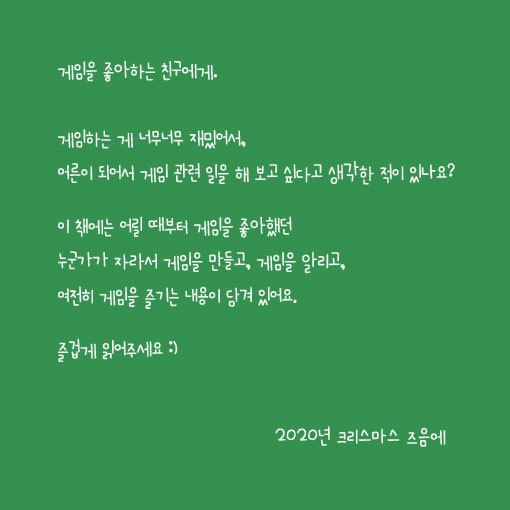 게임을 좋아하는 친구에게.
게임하는 게 너무너무 재밌어서,
어른이 되어서 게임 관련 일을 해 보고 싶다고 생각한 적이 있나요?
이 책에는 어릴 때부터 게임을 좋아했던
누군가가 자라서 게임을 만들고, 게임을 알리고,
여전히 게임을 즐기는 내용이 담겨 있어요.
즐겁게 읽어주세요 :)
2020년 크리스마스 즈음에